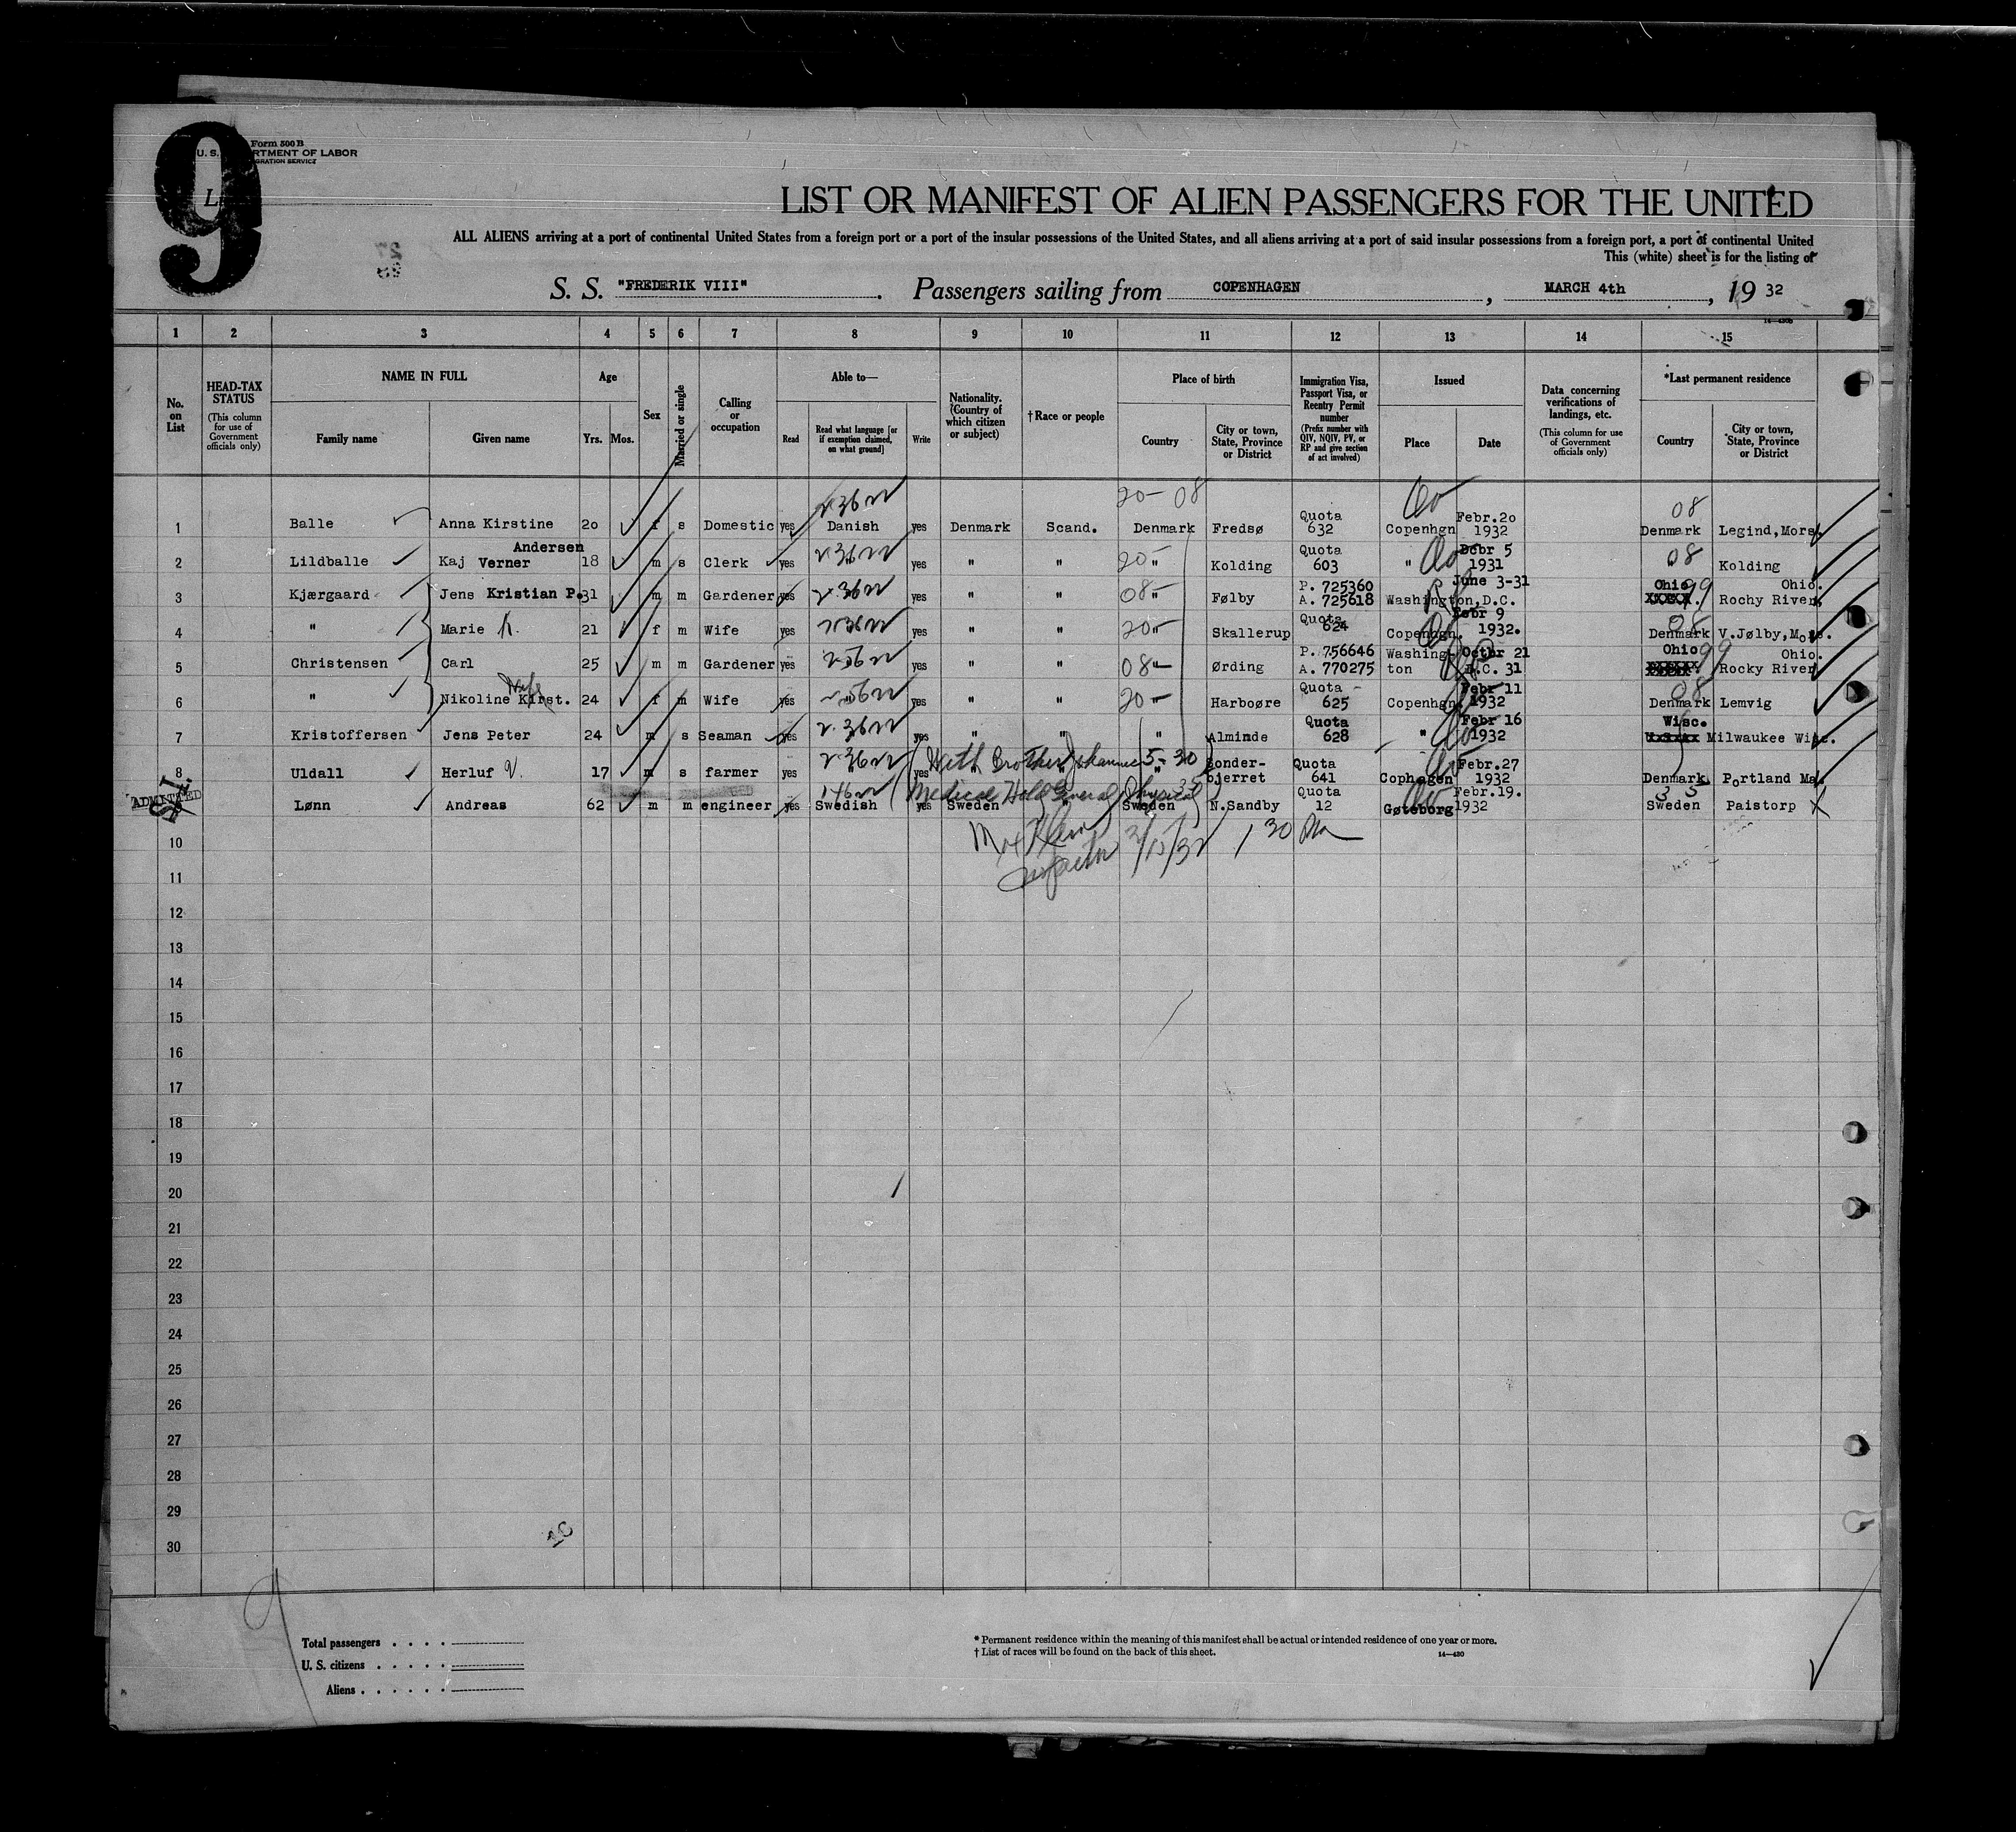 9
Form 500 B
U. S. DEPARTMENT OF LABOR
IMMIGRATION SERVICE
LIST OR MANIFEST OF ALIEN PASSENGERS FOR THE UNITED
ALL ALIENS arriving at a port of continental United States from a foreign port or a port of the insular possessions of the United States, and all aliens arriving at a port of said insular possessions from a foreign port, a port of continental United
This (white) sheet is for the listing of
S. S. "FREDERIK VIII". Passengers sailing from COPENHAGEN, MARCH 4th, 19 32
1 2 3 4 5 6 7 8 9 10 11 12 13 14 15
No. on List
HEAD-TAX STATUS (This column for use of Government officials only)
NAME IN FULL Family name Given name
Age Yrs. Mos.
Sex
Married or single
Calling or occupation
Able to— Read Read what language [or if exemption claimed, on what ground] Write
Nationality. (Country of which citizen or subject)
†Race or people
Place of birth Country City or town, State, Province or District
Immigration Visa, Passport Visa, or Reentry Permit number (Prefix number with QIV, NQIV, PV, or RP and give section of act involved)
Issued Place Date
Data concerning verifications of landings, etc. (This column for use of Government officials only)
*Last permanent residence Country City or town, State, Province or District
20- 08 08
1 Balle Anna Kirstine 20 f s Domestic yes Danish yes Denmark Scand. Denmark Fredsø Quota 632 Copenhgn Febr.20 1932 Denmark Legind,Mors.
2 Lildballe Kaj Verner Andersen 18 m s Clerk yes " yes " " 20- " Kolding Quota 603 " Dcbr 5 1931 " 08 Kolding
3 Kjærgaard Jens Kristian P. 31 m m Gardener yes " yes " " 08- " Følby P. 725360 A. 725618 Washington,D.C. June 3-31 Ohio 99 Rochy River, Ohio.
4 " Marie K. 21 f m Wife yes " yes " " 20- " Skallerup Quota 624 Copenhgn. Febr 9 1932. Denmark 08 V.Jølby,Mors.
5 Christensen Carl 25 m m Gardener yes " yes " " 08- " Ørding P. 756646 A. 770275 Washington D.C. Octbr 21 31 Ohio 99 Rocky River Ohio.
6 " Nikoline Kirst. Wife 24 f m Wife yes " yes " " 20- " Harboøre Quota 625 Copenhgn. Febr 11 1932 Denmark 08 Lemvig
7 Kristoffersen Jens Peter 24 m s Seaman yes " yes " " " Alminde Quota 628 " Febr 16 1932 Wisc. Milwaukee Wisc.
8 Uldall Herluf V. 17 m s farmer yes " yes " " " Sonder-bjerret Quota 641 Cophagen Febr.27 1932 Denmark Portland Ma.
With Brother Johannes 5-30
ADMITTED S.I.
9 Lønn Andreas 62 m m engineer yes Swedish yes Sweden " Sweden N.Sandby Quota 12 Gøteborg Febr.19. 1932 Sweden 35 Paistorp X
Medical Hold General Physical
Inspector 3/15/32 1 30 Pm
10
11
12
13
14
15
16
17
18
19
20
21
22
23
24
25
26
27
28
29
30
Total passengers . . . .
U. S. citizens . . . . .
Aliens . . . . . .
* Permanent residence within the meaning of this manifest shall be actual or intended residence of one year or more.
† List of races will be found on the back of this sheet.
14—430